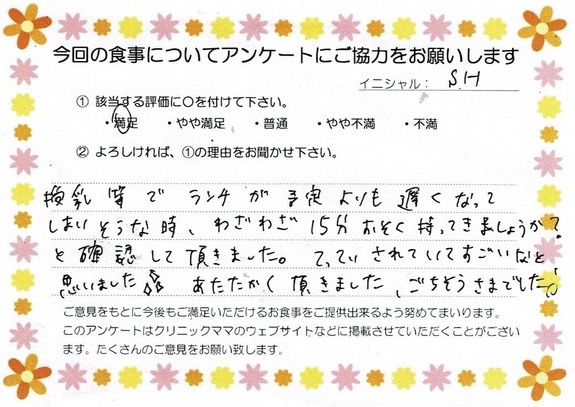 今回の食事についてアンケートにご協力をお願いします
イニシャル： S.H
① 該当する評価に○を付けて下さい。
・満足 ・やや満足 ・普通 ・やや不満 ・不満
② よろしければ、①の理由をお聞かせ下さい。
換乳等で ランチが 予定よりも遅くなって
しまいそうな時、わざわざ 15分おそく持ってきましょうか?
と確認して頂きました。 てっていされていてすごいなと
思いました あたたかく頂きました、ごちそうさまでした。
ご意見をもとに今後もご満足いただけるお食事をご提供出来るよう努めてまいります。
このアンケートはクリニックママのウェブサイトなどに掲載させていただくことがござい
ます。たくさんのご意見をお願い致します。